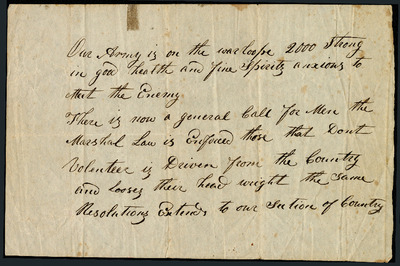 Our Army is on the warloope 2000 Strong
in good health and fine Spirits anxious to
Meet the Enemy
There is now a general Call for Men the
Marshal Law is Enforced those that Dont
Volunteer is Driven from the Country
and Looses their head wright the Same
Resolutions Extends to our Section of Country